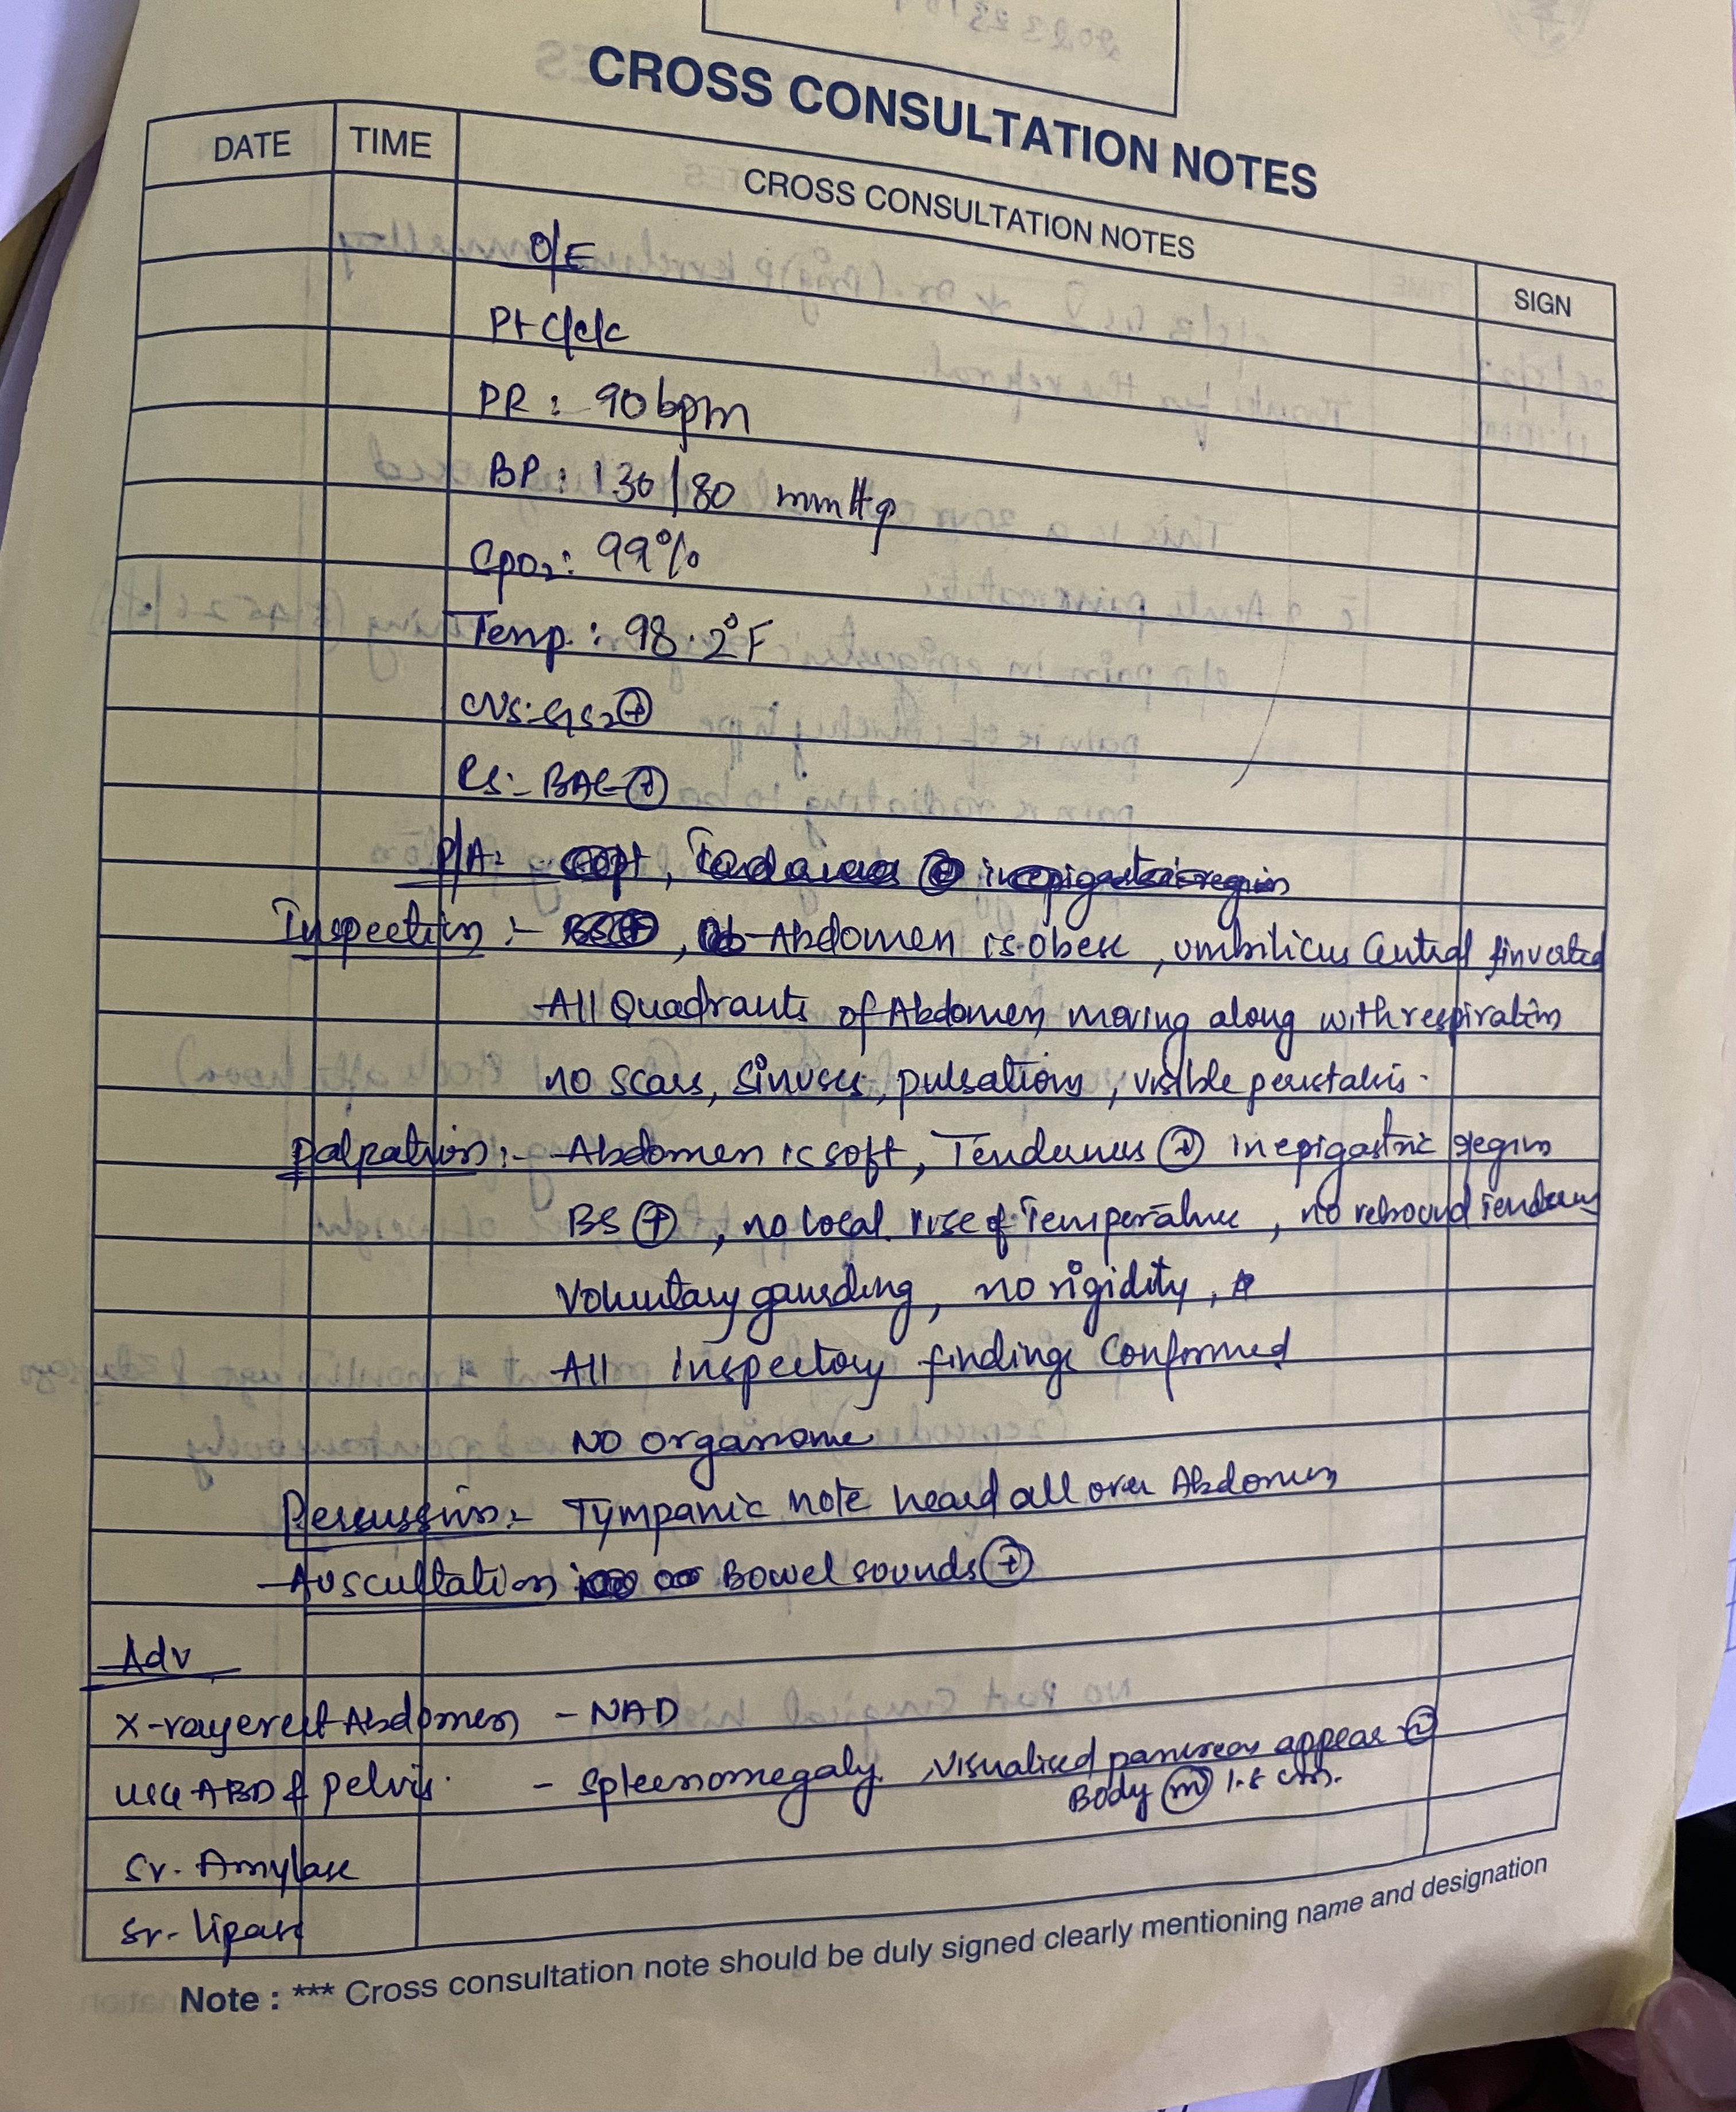 CROSS CONSULTATION NOTES
DATE TIME CROSS CONSULTATION NOTES SIGN
O/E
Pt c/c/c
PR : 90 bpm
BP : 130/80 mmHg
Spo2 : 99%
Temp. : 98.2°F
CVS:- S1S2 ⊕
RS:- BAE ⊕
P/A:- soft, ⊕ in epigastric region
Inspection :- BS⊕, -Abdomen is obese, umbilicus central & inverted
-All Quadrants of Abdomen moving along with respiration
no scars, sinuses, pulsations, visible peristalsis.
palpation :- -Abdomen is soft, Tenderness ⊕ in epigastric region
BS ⊕, no local rise of Temperature, no rebound Tenderness
Voluntary gaurding, no rigidity,
-All inspectory findings conformed
NO organome
Percussion :- Tympanic note heard all over Abdomen
-Auscultation Bowel sounds ⊕
Adv
X-ray erect Abdomen - NAD
USG ABD & pelvis. - Spleenomegaly. Visualised pancreas appear
Body (m) 1.8 cm.
Sr. Amylase
Sr. lipase
Note : *** Cross consultation note should be duly signed clearly mentioning name and designation